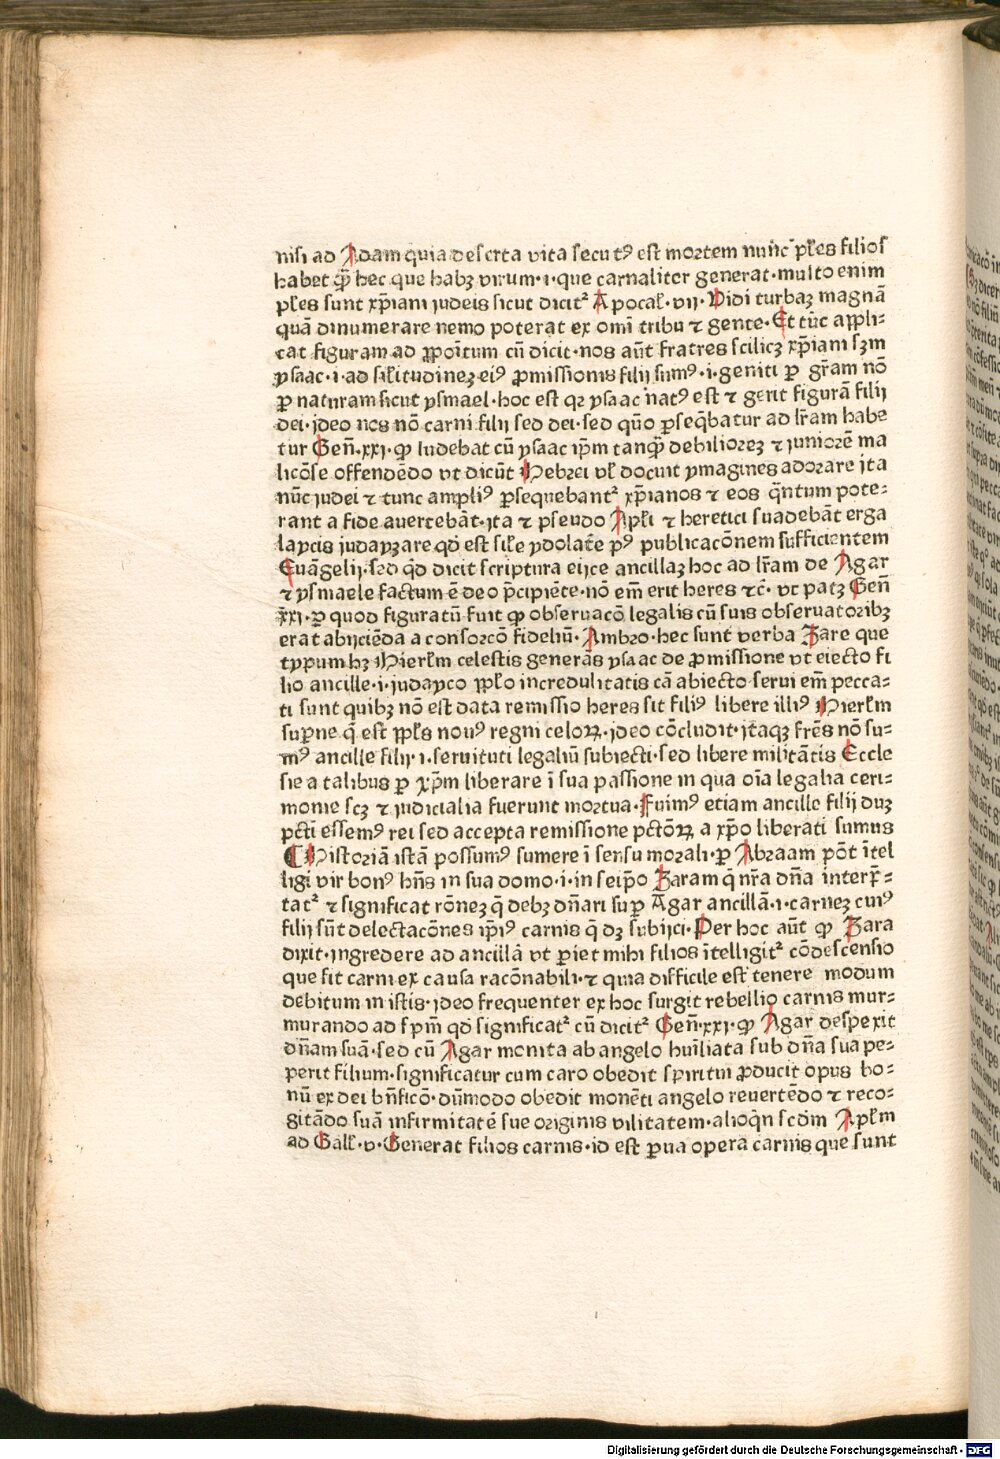 nisi ad Adam quia deserta vita secutꝰ est mortem nūnc pl̄es filios
habet ꝙ̄ hec que habꝫ virum·i·que carnaliter generat·multo enim
pl̄es sunt xp̄iani judeis sicut dicit᷑ Apocal̄·vij·Vidi turbaꝫ magnā
quā dinumerare nemo poterat ex omī tribu ⁊ gente·Et tūc appli-
cat figuram ad ꝓpoītum cū dicit·nos aūt fratres scilicꝫ xp̄iani sꝫm
ysaac·i·ad sil̄itudineꝫ eiꝰ ꝓmissionis filij sumꝰ·i·geniti ꝑ gr̄am nō
ꝑ naturam sicut ysmael·hoc est qꝛ ysaac natꝰ est ⁊ gerit figurā filij
dei·jdeo nos nō carni filij sed dei·sed quō ꝑseq̄batur ad lr̄am habe
tur Gen̄·xxi·ꝙ ludebat cū ysaac ip̄m tanqꝫ̄ debilioreꝫ ⁊ juniorē ma
licōse offendēdo vt dicūt Hebrei vl̄ docuit ymagines adorare jta
nūc judei ⁊ tunc ampliꝰ ꝑsequebant᷑ xp̄ianos ⁊ eos q̄ntum pote-
rant a fide auertebāt·jta ⁊ pseudo Apl̄i ⁊ heretici suadebāt erga
laycis judayzare qd̄ est sil̄e ydolatē pꝰ publicacōnem sufficientem
Euāgelij·sed qd̄ dicit scriptura eijce ancillaꝫ hoc ad lr̄am de Agar
⁊ ysmaele factum ē deo p̄cipiēte·nō em̄ erit heres ⁊c̄· vt patꝫ Gen̄
xxi·ꝑ quod figuratū fuit ꝙ obseruacō legalis cū suis obseruatoribꝫ
erat abijciēda a consorcō fideliū·Ambro·hec sunt verba Zare que
typum hꝫ Hierl̄m celestis generās ysaac de ꝓmissione vt eiecto fi
lio ancille·i·judayco ppl̄o incredulitatis cā abiecto serui em̄ pecca-
ti sunt quibꝫ nō est data remissio heres sit filiꝰ libere illiꝰ Hierl̄m
sup̄ne q̄ est ppl̄s nouꝰ regni celoꝝ·jdeo cōcludit·jtaqꝫ fr̄es nō su-
mꝰ ancille filij·i·seruituti legaliū subiecti·sed libere militātis Eccle
sie a talibus ꝑ xp̄m liberare ī sua passione in qua oīa legalia ceri-
monie scꝫ ⁊ judicialia fuerunt mortua·Fuimꝰ etiam ancille filij duꝫ
pcti essemꝰ rei sed accepta remissione pctōꝝ a xp̄o liberati sumus
¶ Historiā istā possumꝰ sumere ī sensu morali·ꝑ Abraam pōt ītel
ligi vir bonꝰ hn̄s in sua domo·i·in seip̄o Zaram q̄ nr̄a dn̄a interp̄-
tat᷑ ⁊ significat rōneꝫ q̄ debꝫ dn̄ari suꝑ Agar ancillā·i·carneꝫ cuiꝰ
filij sūt delectacōnes ip̄iꝰ carnis q̄ dꝫ subijci·Per hoc aūt ꝙ Zara
dixit·ingredere ad ancillā vt ꝑiet mihi filios ītelligit᷑ cōdescensio
que fit carni ex causa racōnabili·⁊ quia difficile est tenere modum
debitum in istis·jdeo frequenter ex hoc surgit rebellio carnis mur-
murando ad sp̄m qd̄ significat᷑ cū dicit᷑ Gen̄·xxi·ꝙ Agar despexit
dn̄am suā·sed cū Agar monita ab angelo huīliata sub dn̄a sua pe-
perit filium·significatur cum caro obedit spiritui ꝓducit opus bo-
nū ex dei bn̄ficō·dūmodo obedit monēti angelo reuertēdo ⁊ reco-
gitādo suā infirmitatē sue originis vilitatem·alioq̄n scd̄m Apl̄m
ad Gall̄·v·Generat filios carnis·id est ꝑua opera carnis que sunt
Digitalisierung gefördert durch die Deutsche Forschungsgemeinschaft - DFG